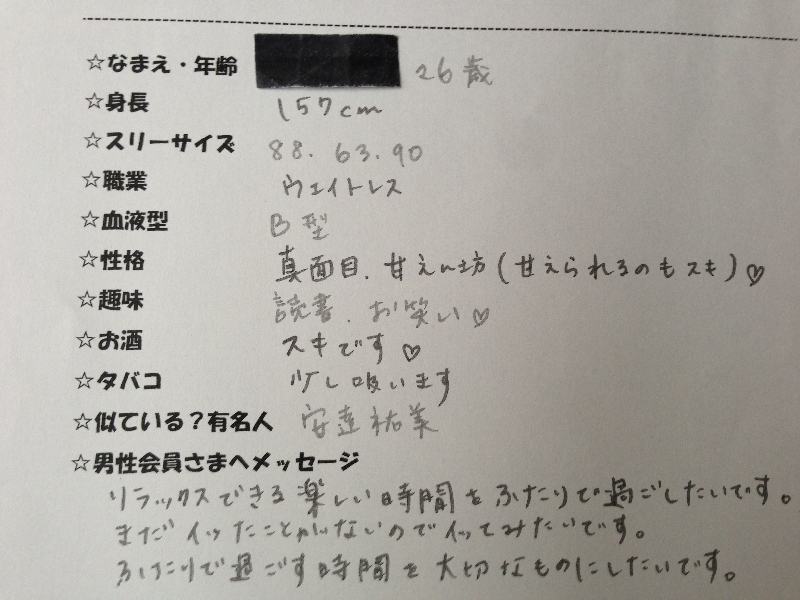 ☆なまえ・年齢 26歳
☆身長 157cm
☆スリーサイズ 88. 63. 90
☆職業 ウェイトレス
☆血液型 B型
☆性格 真面目. 甘えん坊(甘えられるのもスキ)♡
☆趣味 読書. お笑い♡
☆お酒 スキです♡
☆タバコ 少し吸います
☆似ている?有名人 安達祐美
☆男性会員さまへメッセージ
リラックスできる楽しい時間をふたりで過ごしたいです。
まだイッたことがないのでイッてみたいです。
ふたりで過ごす時間を大切なものにしたいです。